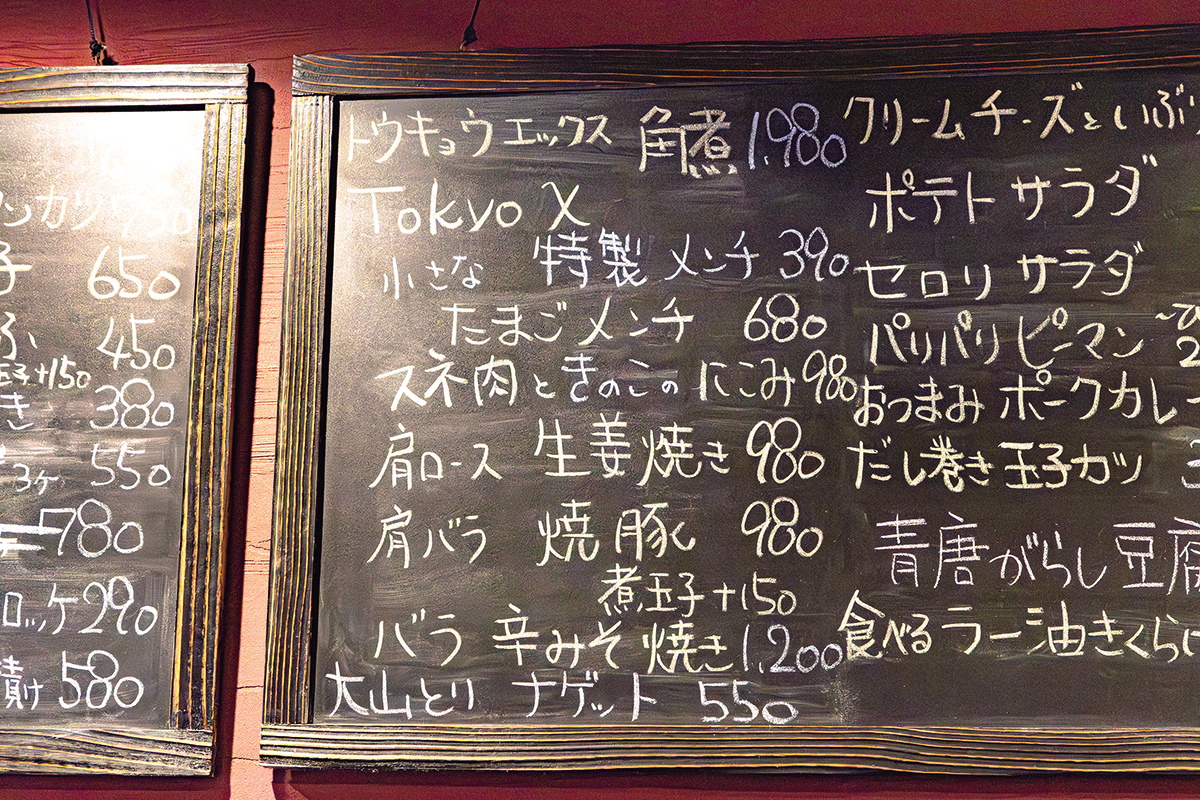 ンカツ 750
子 650
450
玉子+150
き 380
3ヶ 550
780
ロッケ 290
漬け 580
トウキョウエックス 角煮 1,980
Tokyo X
小さな 特製 メンチ 390
たまごメンチ 680
スネ肉ときのこの にこみ 980
肩ロース 生姜焼き 980
肩バラ 焼豚 980
煮玉子+150
バラ 辛みそ焼き 1,200
大山とり ナゲット 550
クリームチーズといぶ
ポテトサラダ
セロリサラダ
パリパリピーマン
おつまみ ポークカレー
だし巻き玉子カツ
青唐がらし豆腐
食べるラー油きくらげ